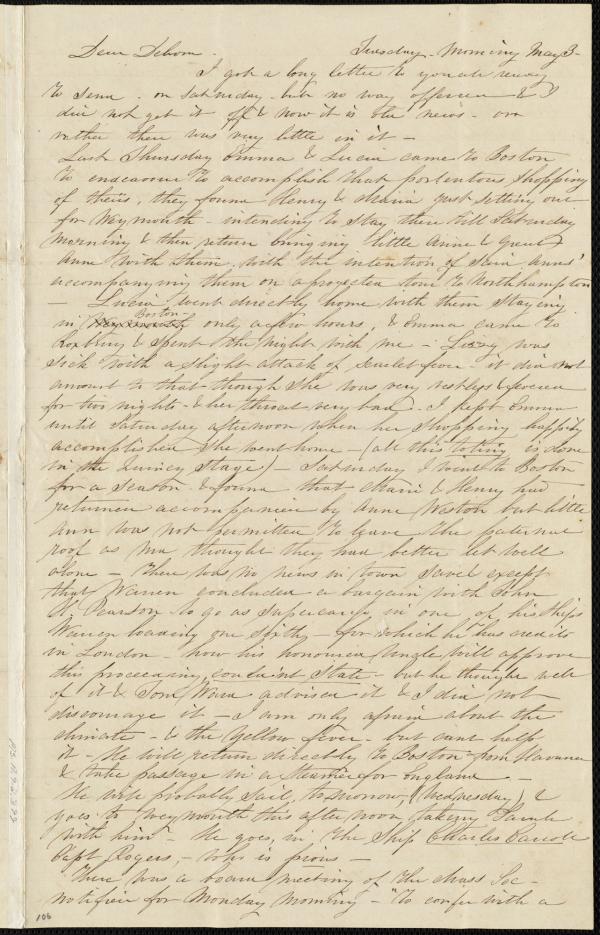 Dear Debora. Tuesday - Morning May 3 -
I got a long letter to you all ready
to send - on Saturday - but no way offered & I
did not get it off & now it is old news - or
rather there was very little in it -
Last Thursday Emma & Lucia came to Boston
to endeavour to accomplish that portentous shopping
of theirs, they found Henry & Maria just setting out
for Weymouth - intending to stay there till Saturday
morning & then return bringing little Anne & great
Anne with them, with the intention of their Anne's
accompanying them on a projected tour to Northhampton
- Lucia went directly home with them staying
in Boston only a few hours, & Emma came to
Roxbury & spent the night with me - Lizzy was
sick with a slight attack of scarlet fever - it did not
amount to that though she was very restless & fevered
for two nights - & her throat very bad - I kept Emma
until Saturday afternoon when her shopping happily
accomplished she went home - (all this toting is done
in the Quincy Stage) - Saturday I went to Boston
for a season & found that Maria & Henry had
returned accompanied by Anne Weston but little
Ann was not permitted to leave the paternal
roof as Ma thought they had better let well
alone - There was no news in town saved except
that Warren concluded a bargain with John
H. Pearson to go as supercargo in one of his ships
Warren loading one sixth - for which he has credits
in London - how his honoured Uncle will approve
this proceeding, couldn't state - but he thought well
of it & Tom Ward advised it & I did not
discourage it - I am only afraid about the
climate - & the Yellow fever - but can't help
it - He will return directly to Boston from Havanna
& take passage in a Steamer for England -
He will probably sail, to-morrow, (Wednesday) &
goes to Weymouth this afternoon, taking
with him - He goes, in the Ship Charles
Capt Rogers, - who is pious -
There was a board meeting of the Mass Soc -
notified for Monday morning - "To confer with a
106